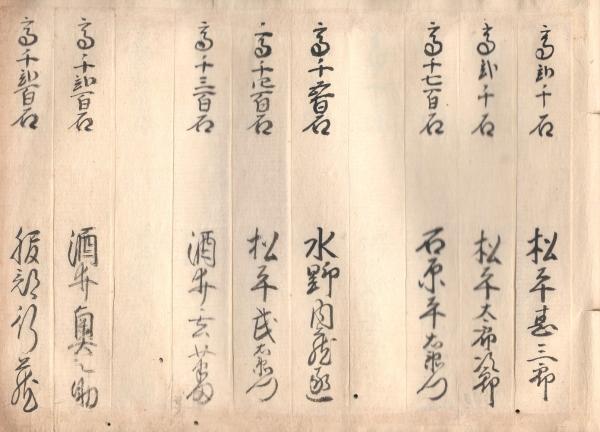 高弐千石
松平甚三郎
高弐千石
松平太郎次郎
高千七百石
石原平右衛門
高千五百石
水野内蔵
高千四百石
松平武右衛門
高千三百石
酒井
高千弐百石
酒井奥之助
高千弐百石
服部行蔵